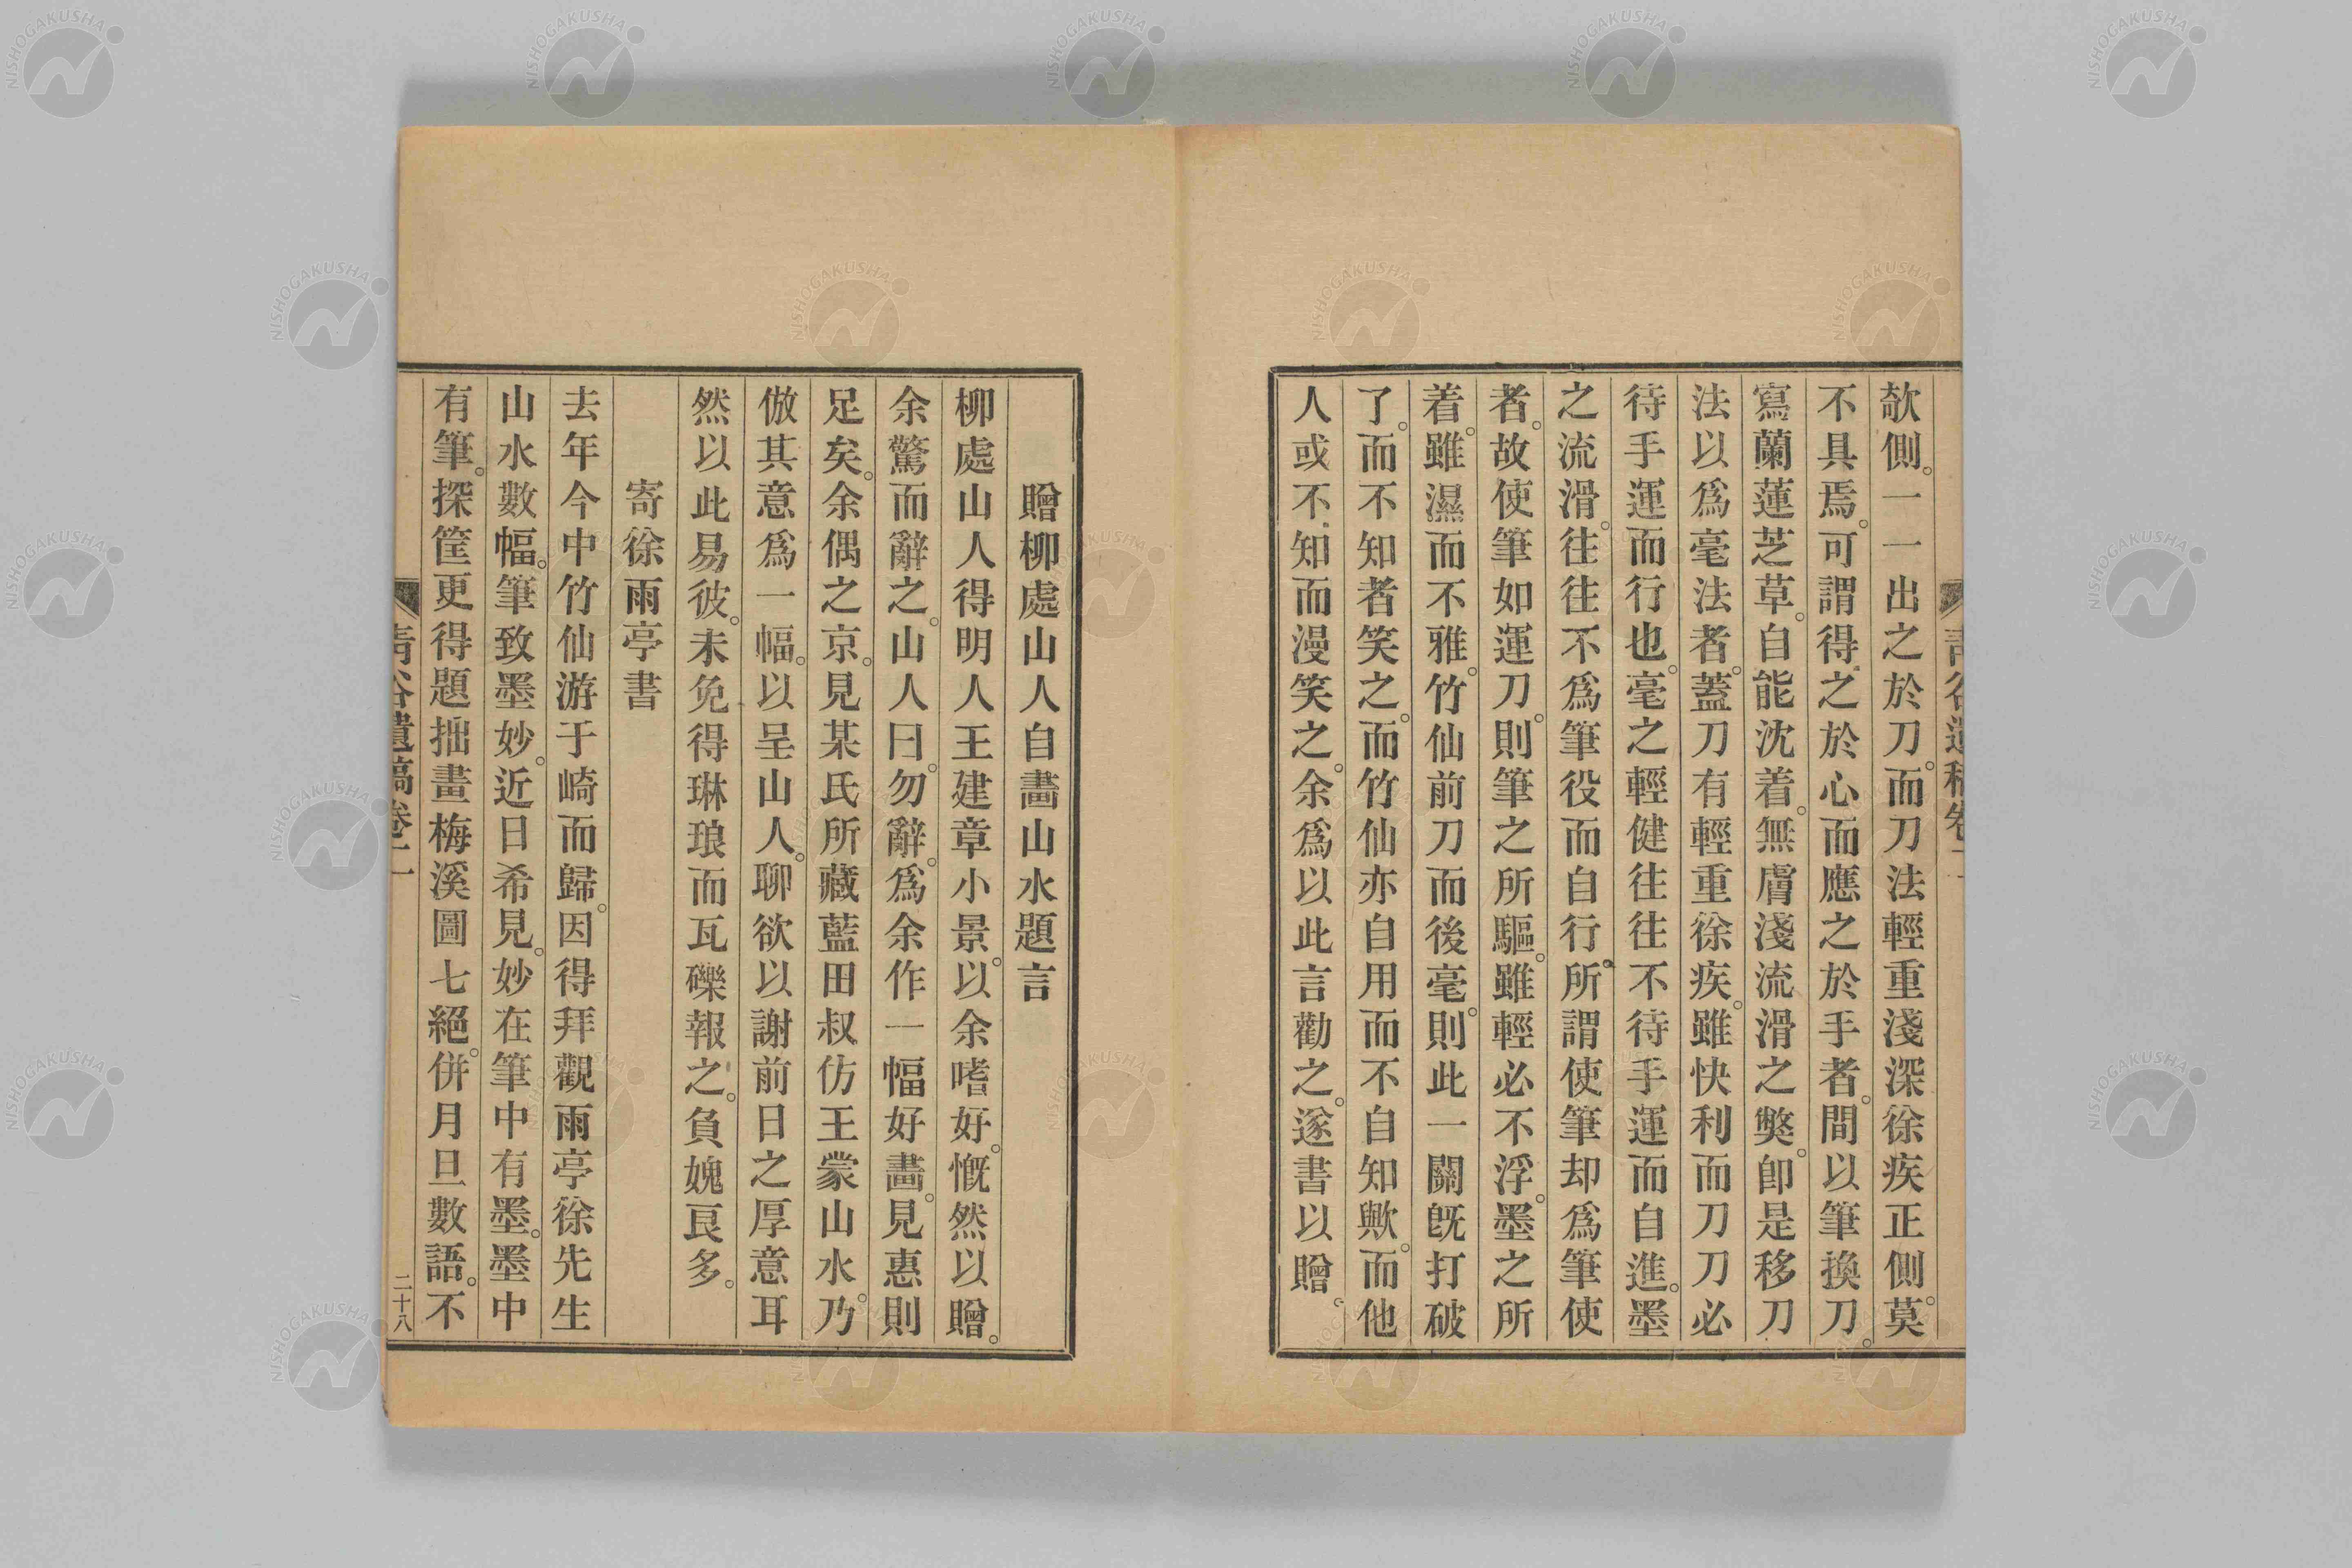 欹側。一一出之於刀。而刀法輕重淺深徐疾正側。莫
不具焉。可謂得之於心而應之於手者。間以筆換刀。
寫蘭蓮芝草。自能沈着。無膚淺流滑之弊。卽是移刀
法以爲毫法者。蓋刀有輕重徐疾。雖快利而刀刀必
待手運而行也。毫之輕健往往不待手運而自進。墨
之流滑。往往不爲筆役而自行。所謂使筆却爲筆使
者。故使筆如運刀。則筆之所驅。雖輕必不浮。墨之所
着。雖濕而不雅。竹仙前刀而後毫。則此一關旣打破
了。而不知者笑之。而竹仙亦自用而不自知歟。而他
人或不知而漫笑之。余爲以此言勸之。遂書以贈。
贈柳處山人自畵山水題言
柳處山人得明人王建章小景。以余嗜好。慨然以贈。
余驚而辭之。山人曰。勿辭。爲余作一幅好畵。見惠則
足矣。余偶之京。見某氏所藏藍田叔仿王蒙山水。乃
倣其意爲一幅。以呈山人。聊欲以謝前日之厚意耳
然以此易彼。未免得琳琅而瓦礫報之。負媿良多。
寄徐雨亭書
去年今中竹仙游于崎而歸。因得拜觀雨亭徐先生
山水數幅。筆致墨妙。近日希見。妙在筆中有墨。墨中
有筆。探筐更得題拙畫梅溪圖七絕。併月旦數語。不
二十八